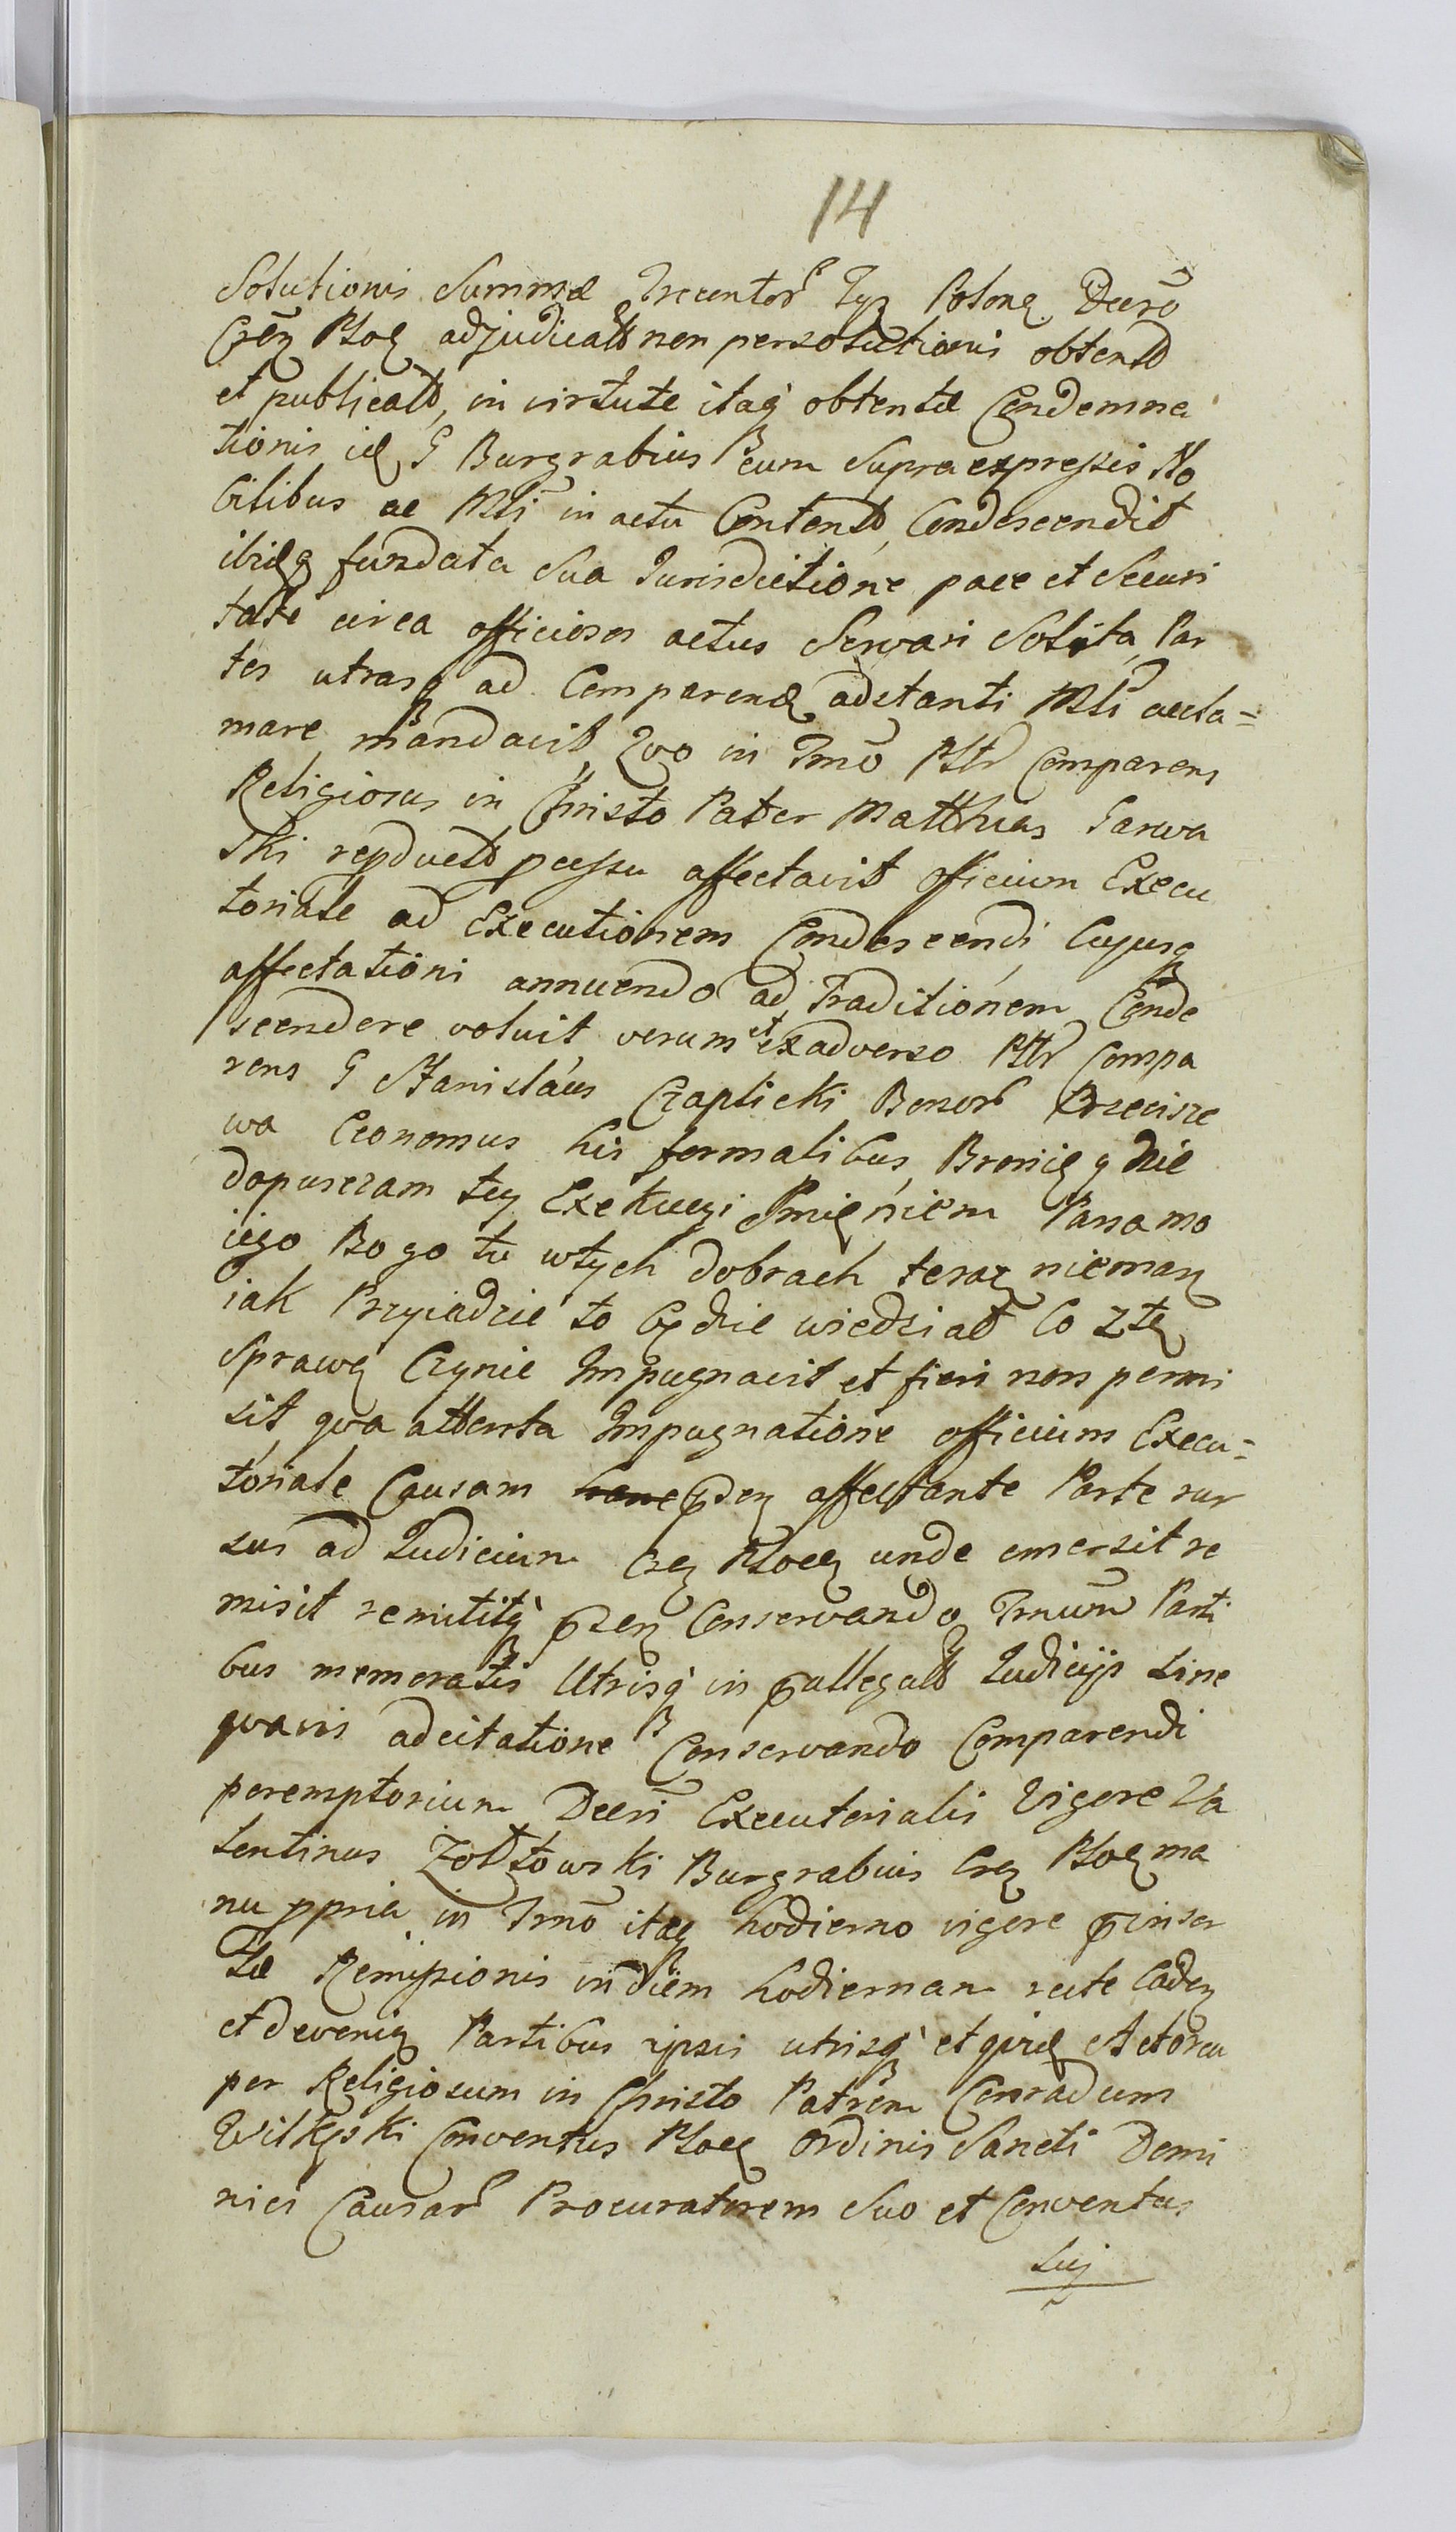 14
Solutionis Summæ Trecentor Polonę Decro
Cręn Płoc adjudicatt non persolutionis obtentt
et publicatt, in virtute itaq obtentæ Condemna
tionis G Burgrabius cum supra expressis No
bilibus ac Mtri in actu Contentt, Condescendit
ibiq fundata sua Jurisdictione pace et securi
tate circa officiosos actus servari solita, Par
tes utrasq ad Comparend adstanti Mtri accla=
mare mandavit, Quo in Tmo Pttr Comparens
Religiosus in Christo Pater Matthias Sarva
ski affectavit officium Execu
toriale ad Executionem Condescendi, Cujusq
affectationi annuendo ad Traditionem Conde
scendere voluit verum et ex adverso Pttr Compa
rens G Stanislaus Czaplicki Bonor Przecisze
wa Economus his formalibus, Bronię y Nie
dopuszczam tey Exekucyi Imięniem Pana mo
iego Bo go tu wtych dobrach teraz niemasz
iak Przyiadzie to będzie wiedział Co z tą
Sprawą Czynić Impugnavit et fieri non permi
sit qua attenta Impugnatione officium Execu=
toriale Causam affectante Parte rur
sus ad Judicium Płocę unde emersit re
misit remititq Conservando Tmum Parti
bus memoratis Utrisq in Judicijs sine
quavis adcitatione Conservando Comparendi
peremptorium Decri Executorialis Vigore Va
lentinus Żołtowski Burgrabius Płocę ma
nu ppria in Tmo itaq hodierno vigore
tæ Remissionis in diem hodiernam recte Caden
et deveniẽ Partibus ipsis utrisq et Actorea
per Religiosum in Christo Patrem Conradum
Wilkęski Conventus Płocę Ordinis Sancti Domi
nici Causar Procuratorem Suo et Conventus
Sui